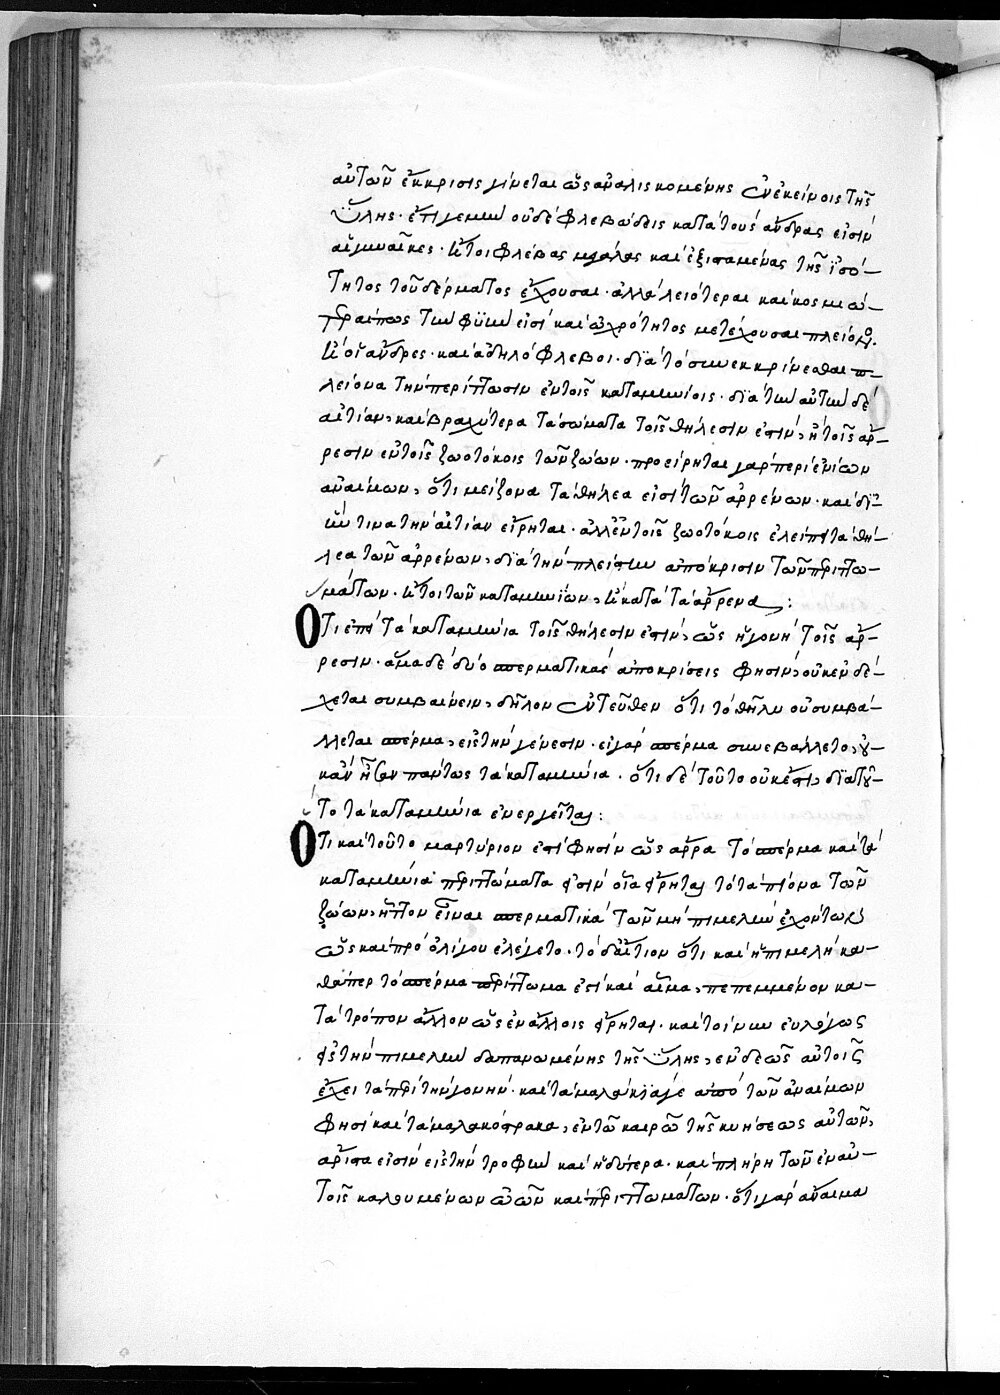 αὐτῶν ἔκκρισις γίνεται ὡς ἀναλισκομένης ἐν ἐκείνοις τῆς
ὕλης· ἔτι γε μὴν οὐδὲ φλεβώδεις κατὰ τοὺς ἄνδρας εἰσὶν
αἱ γυναῖκες· ἤτοι φλέβας μεγάλας καὶ ἐξισταμένας τῆς ἰσό-
τητος τοῦ δέρματος ἔχουσαι· ἀλλὰ λειότεραι καὶ κοσμιώ-
τεραί πως τὴν φύσιν εἰσὶ καὶ ὠχρότητος μετέχουσαι πλείονος
ἢ οἱ ἄνδρες· καὶ ἀδηλόφλεβοι· διὰ τὸ συνεκκρίνεσθαι π-
λείονα τὴν περίττωσιν ἐν τοῖς καταμηνίοις· διὰ τὴν αὐτὴν δὲ
αἰτίαν, καὶ βραχύτερα τὰ σώματα τοῖς θήλεσιν ἐστὶν, ἢ τοῖς ἄρ-
ρεσιν ἐν τοῖς ζωοτόκοις τῶν ζώων· προείρηται γὰρ περὶ ἐνίων
ἀναίμων, ὅτι μείζονα τὰ θήλεα εἰσὶ τῶν ἀρρένων· καὶ δι'
ὧν τινα τὴν αἰτίαν εἴρηται· ἀλλ' ἐν τοῖς ζωοτόκοις ἐλείπετο τὰ θή-
λεα τῶν ἀρρένων, διὰ τὴν πλείστην ἀπόκρισιν τῶν περιττω-
μάτων· ἤτοι τῶν καταμηνίων, ἢ κατὰ τὰ ἄρρενα:
Ὅτι ἐπεὶ τὰ καταμήνια τοῖς θήλεσιν ἐστὶν, ὡς ἡ γονὴ τοῖς ἄρ-
ρεσιν· ἅμα δὲ δύο σπερματικὰς ἀποκρίσεις φησὶν, οὐκ ἐνδέ-
χεται συμβαίνειν, δῆλον ἐντεῦθεν ὅτι τὸ θῆλυ οὐ συμβά-
λλεται σπέρμα, εἰς τὴν γένεσιν· εἰ γὰρ σπέρμα συνεβάλλετο, οὐ-
κ ἂν ἦσαν πάντως τὰ καταμήνια· ὅτι δὲ τοῦτο οὐκ ἔστι, διὰ τοῦ-
το τὰ καταμήνια ἐνεργεῖται:
Ὅτι καὶ τοῦτο μαρτύριον ἐστὶ φησὶν ὡς ἄρα τὸ σπέρμα καὶ τὰ
καταμήνια περιττώματα φησὶν οἷα εἴρηται τὸ τὰ πίονα τῶν
ζώων, ἧττον εἶναι σπερματικὰ τῶν μὴ πιμελὴν ἐχόντων
ὡς καὶ πρὸ ὀλίγου ἐλέγετο· τὸ δ' αἴτιον ὅτι καὶ ἡ πιμελὴ κα-
θάπερ τὸ σπέρμα περίττωμα ἐστὶ καὶ αἷμα, πεπεμμένον κα-
τὰ τρόπον ἄλλον ὡς ἐν ἄλλοις εἴρηται· καὶ τοίνυν εὐλόγως
εἰς τὴν πιμελὴν δαπανωμένης τῆς ὕλης, ἐνδεῶς αὐτοῖς
ἔχει τὰ περὶ τὴν γονήν· καὶ τὰ μαλάκια γε ἀπὸ τῶν ἀναίμων
φησὶ καὶ τὰ μαλακόστρακα, ἐν τῶ καιρῶ τῆς κυήσεως αὐτῶν,
ἄριστα εἰσὶν εἰς τὴν τροφὴν καὶ ἡδύτερα· καὶ πλήρη τῶν ἐν αὐ-
τοῖς καλουμένων ὠῶν καὶ περιττωμάτων· ὅτι γὰρ ἄναιμα